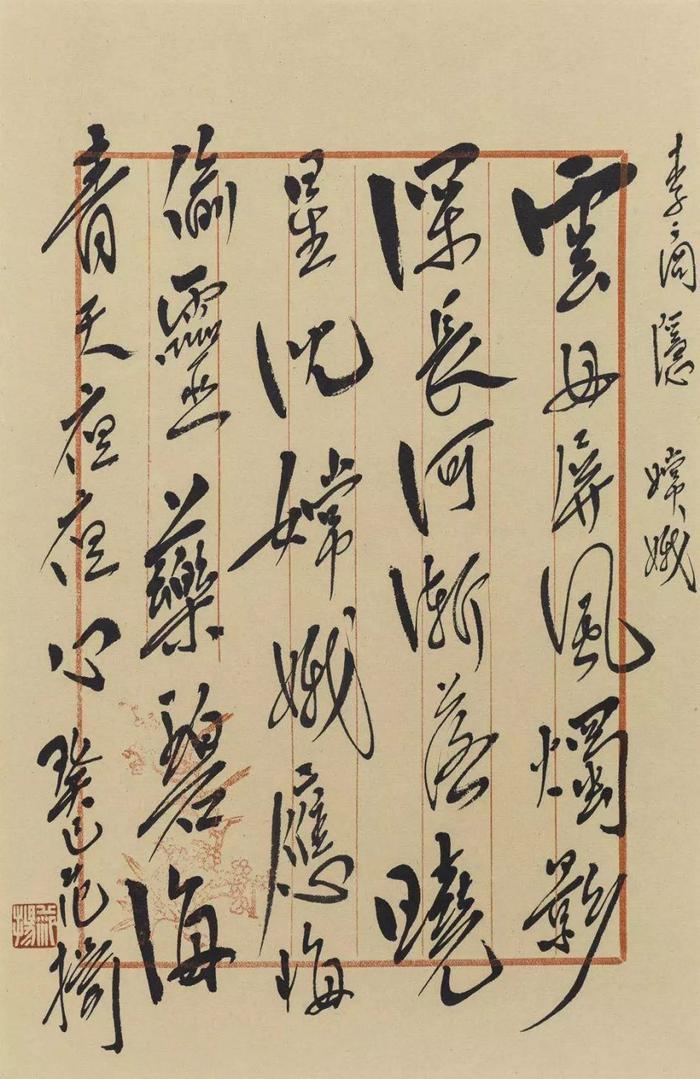 李商隱 嫦娥
雲母屏風燭影
深長河漸落曉
星沈嫦娥應悔
偷靈藥碧海
青天夜夜心 癸巳范揚